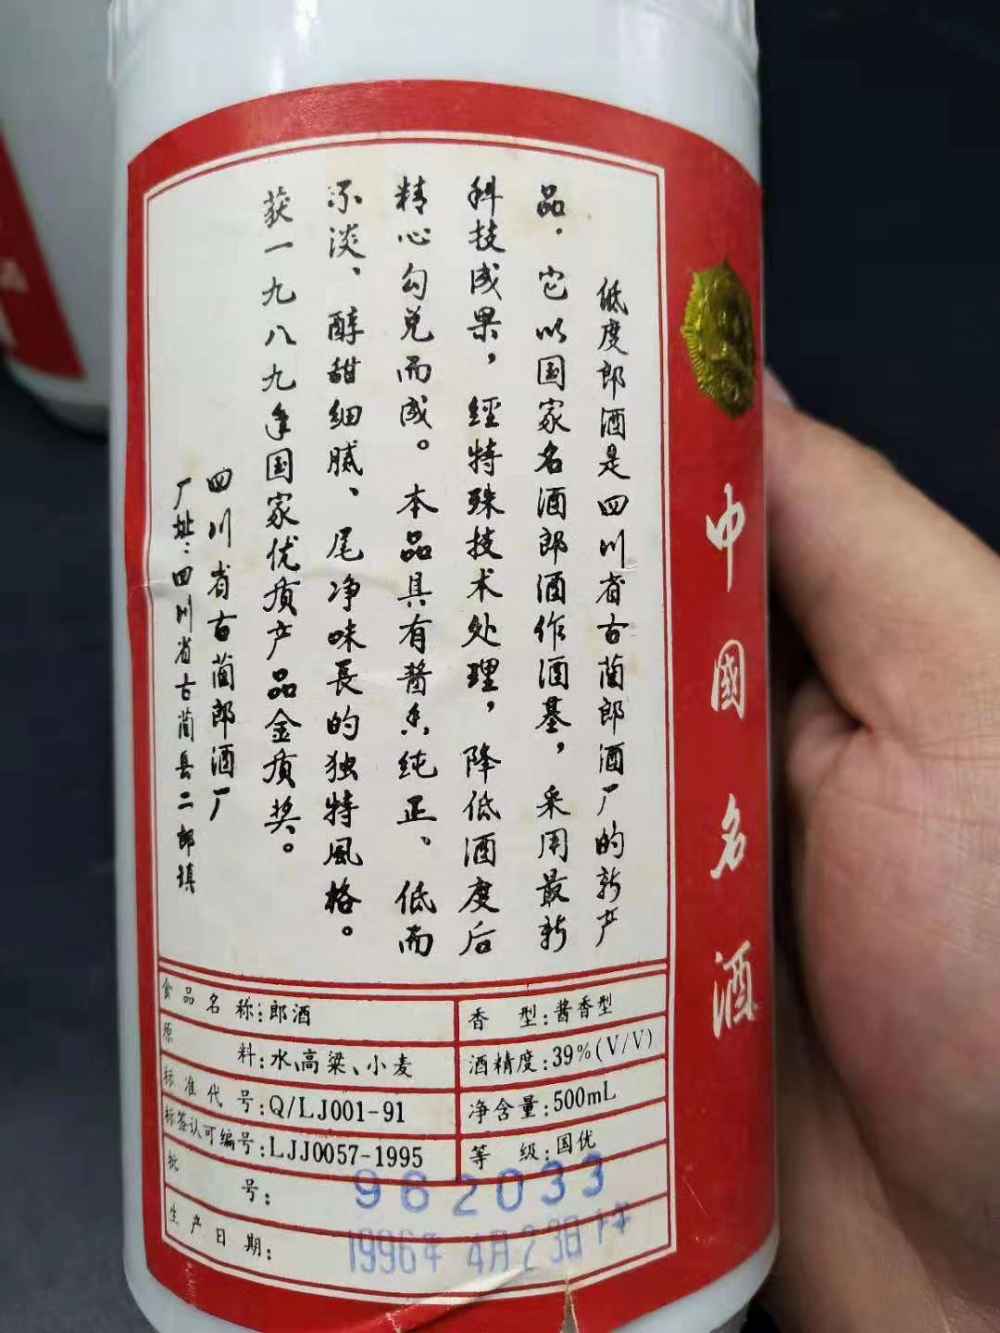 低度郎酒是四川省古蔺郎酒厂的新产
品．它以国家名酒郎酒作酒基，采用最新
科技成果，经特殊技术处理，降低酒度后
精心勾兑而成。本品具有酱香纯正、低而
不淡、醇甜细腻、尾净味長的独特風格。
获一九八九年国家优质产品金质奖。
四川省古蔺郎酒厂
厂址：四川省古蔺县二郎镇
中國名酒
食品名称:郎酒
香型:酱香型
原料:水、高粱、小麦
酒精度:39%(V/V)
标准代号:Q/LJ001-91
净含量:500mL
标签认可编号:LJJ0057-1995
等级:国优
批号: 962033
生产日期: 1996年4月23日